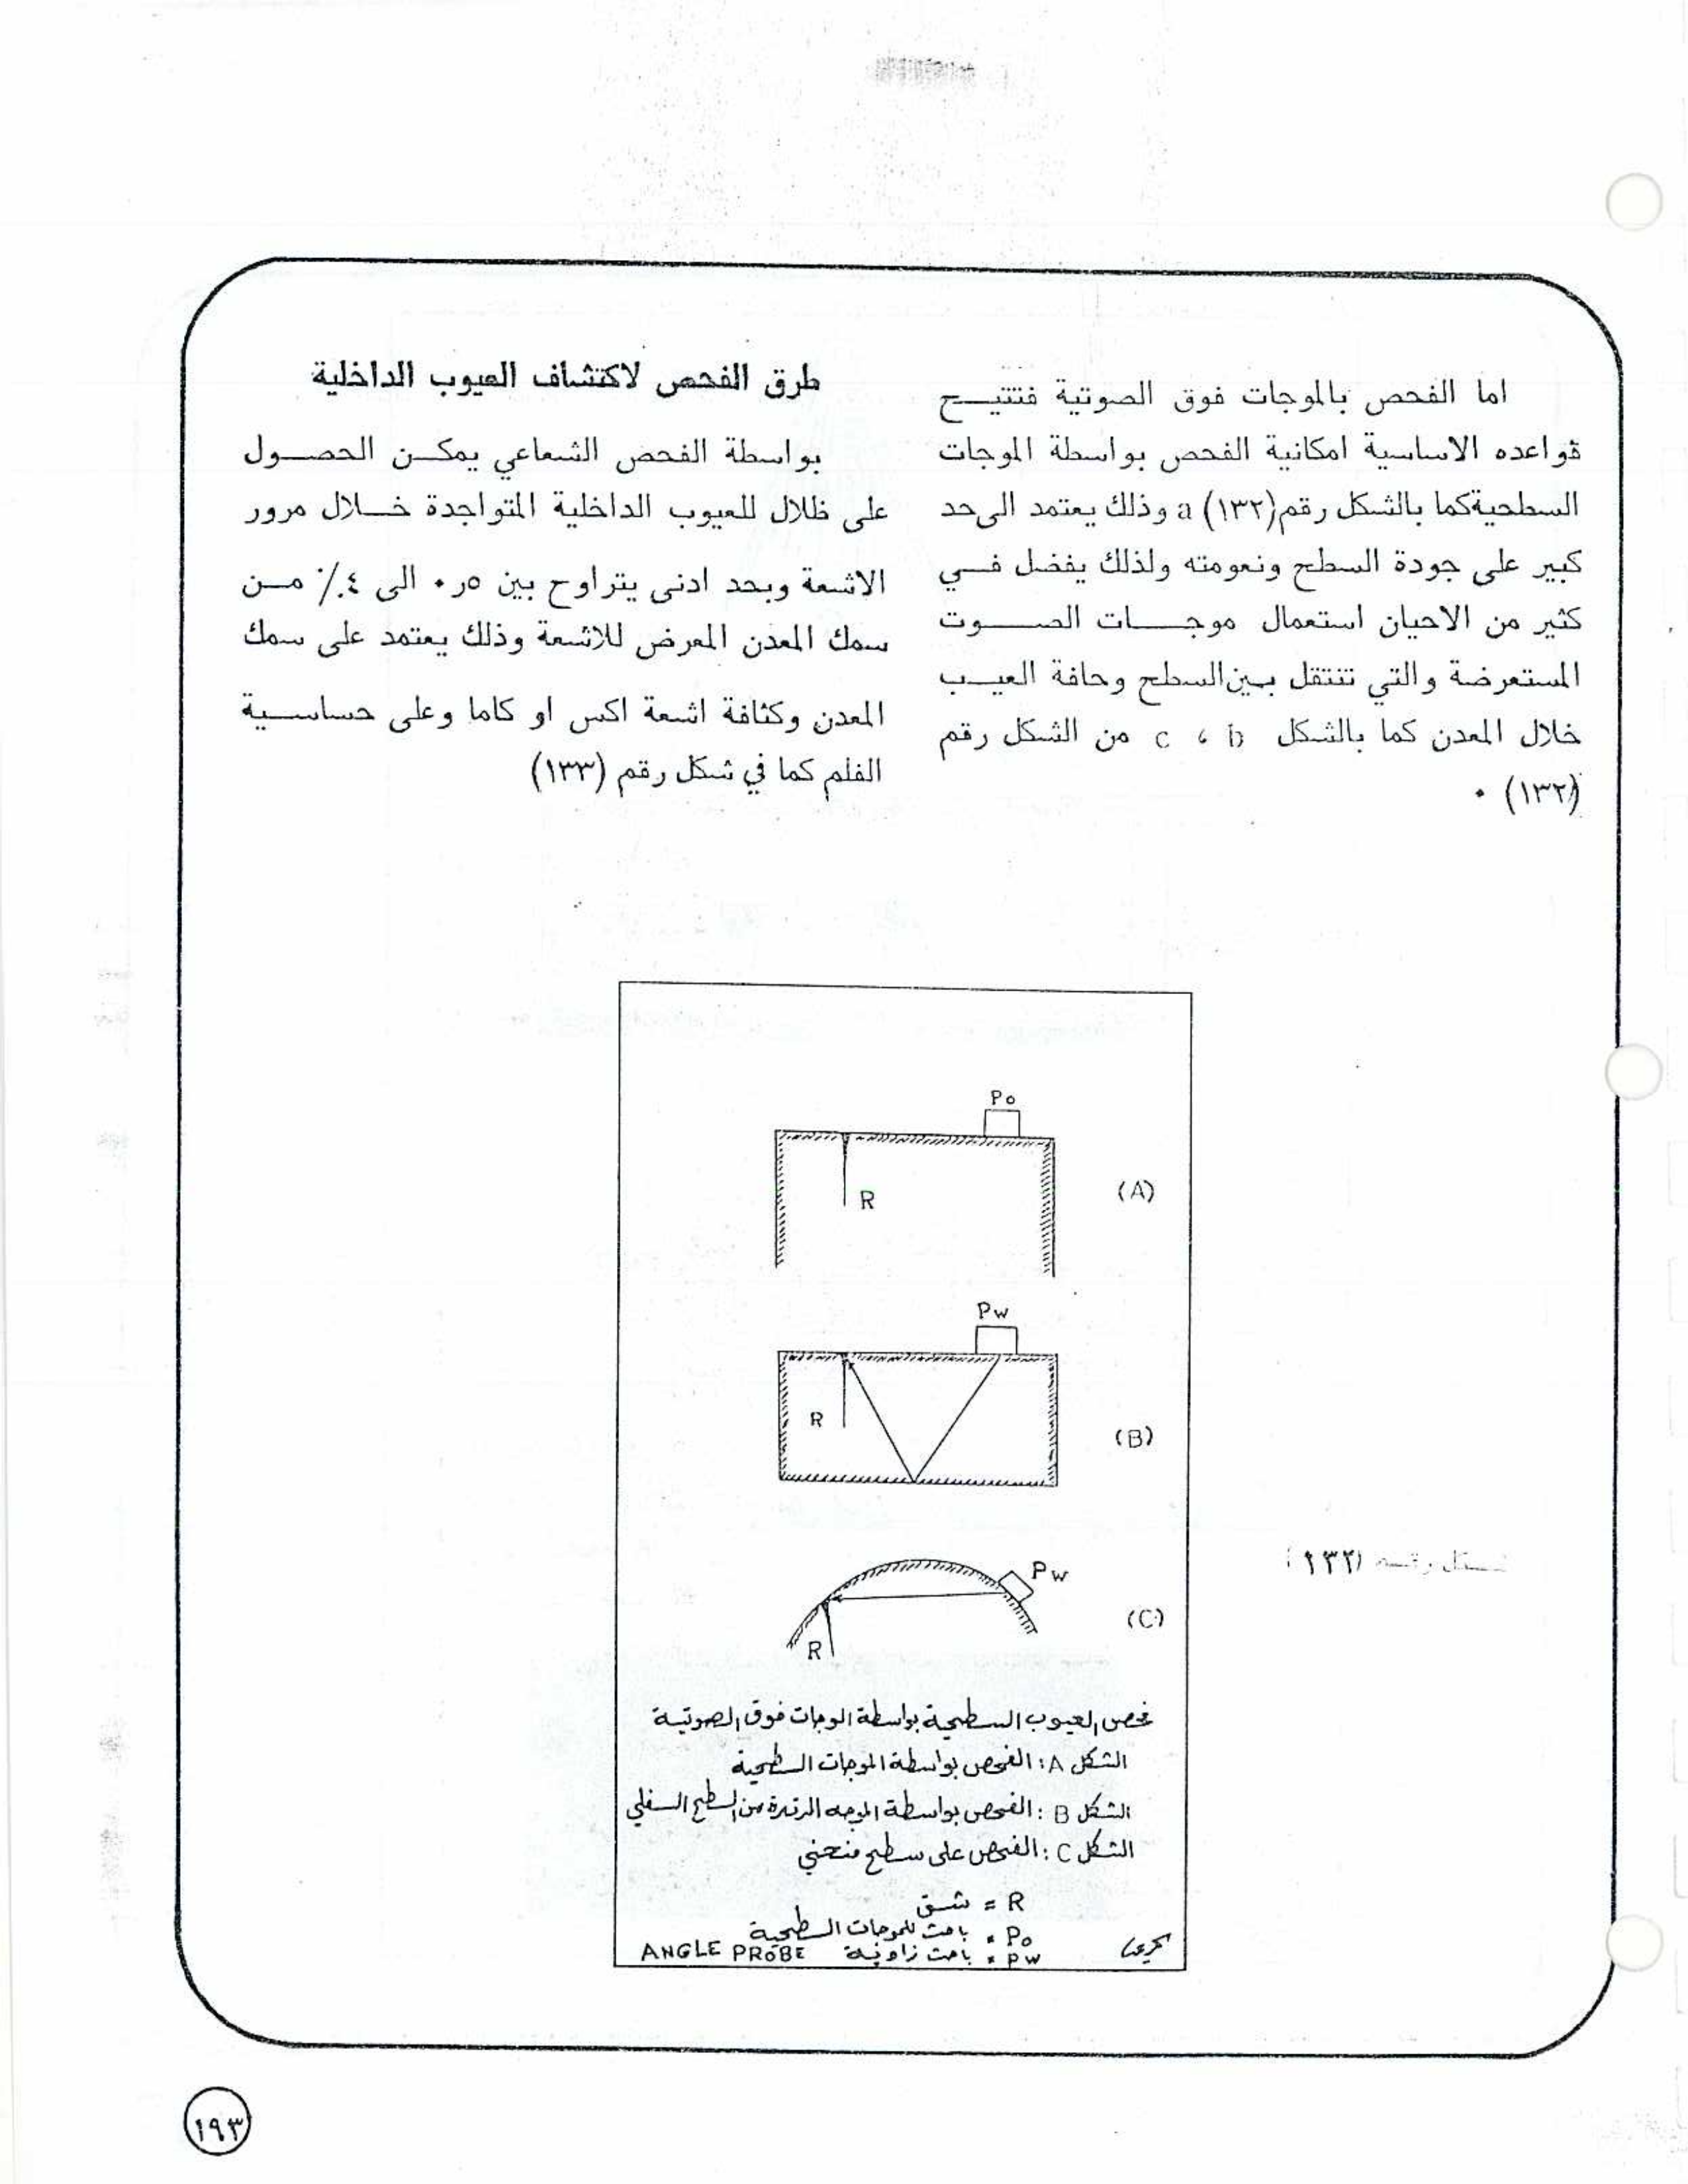 اما الفحص بالموجات فوق الصوتية فتتيـــح
قواعده الاساسية امكانية الفحص بواسطة الموجات
السطحية كما بالشكل رقم (١٣٢) a وذلك يعتمد الى حد
كبير على جودة السطح ونعومته ولذلك يفضل فـــي
كثير من الاحيان استعمال موجـــات الصـــوت
المستعرضة والتي تنتقل بـين السطح وحافة العيـــب
خلال المعدن كما بالشكل b ، c من الشكل رقم
(١٣٢) ٠
طرق الفحص لاكتشاف العيوب الداخلية
بواسطة الفحص الشعاعي يمكــن الحصــول
على ظلال للعيوب الداخلية المتواجدة خـــلال مرور
الاشعة وبحد ادنى يتراوح بين ٥ر٠ الى ٤٪ مــن
سمك المعدن المعرض للاشعة وذلك يعتمد على سمك
المعدن وكثافة اشعة اكس او كاما وعلى حساســية
الفلم كما في شكل رقم (١٣٣)
Po
R
(A)
Pw
R
(B)
Pw
R
(C)
شكل رقم (١٣٢)
فحص العيوب السطحية بواسطة الموجات فوق الصوتية
الشكل A : الفحص بواسطة الموجات السطحية
الشكل B : الفحص بواسطة الموجه المرتدة من السطح السفلي
الشكل C : الفحص على سطح منحني
R = شق
Po = باحث للموجات السطحية
Pw = باحث زاوية ANGLE PROBE
١٩٣